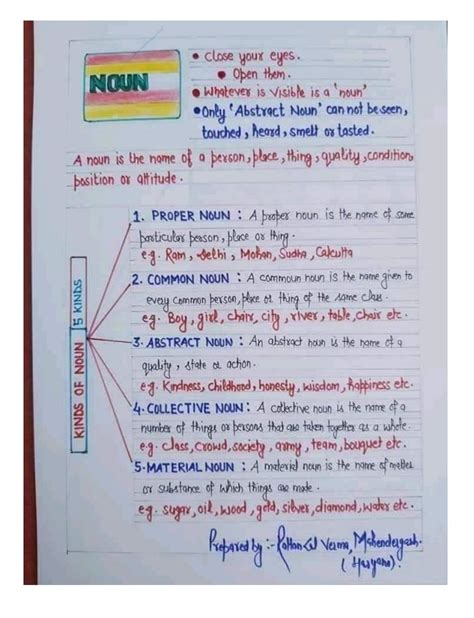 NOUN
• Close your eyes.
• Open them.
• Whatever is visible is a 'noun'
• Only 'Abstract Noun' can not be seen,
touched, heard, smelt or tasted.
A noun is the name of a person, place, thing, quality, condition,
position or attitude.
KINDS OF NOUN 5 KINDS
1. PROPER NOUN : A proper noun is the name of some
particular person, place or thing.
e.g. Ram, Delhi, Mohan, Sudha, Calcutta
2. COMMON NOUN : A commoun noun is the name given to
every common person, place or thing of the same class.
e.g. Boy, girl, chair, city, river, table, chair etc.
3. ABSTRACT NOUN : An abstract noun is the name of a
quality, state or action.
e.g. Kindness, childhood, honesty, wisdom, happiness etc.
4. COLLECTIVE NOUN : A collective noun is the name of a
number of things or persons that are taken together as a whole.
e.g. class, crowd, society, army, team, bouquet etc.
5. MATERIAL NOUN : A material noun is the name of matter
or substance of which things are made.
e.g. sugar, oil, wood, gold, silver, diamond, water etc.
Prepared by :- Rattan Lal Verma, Mahendergarh
(Haryana).